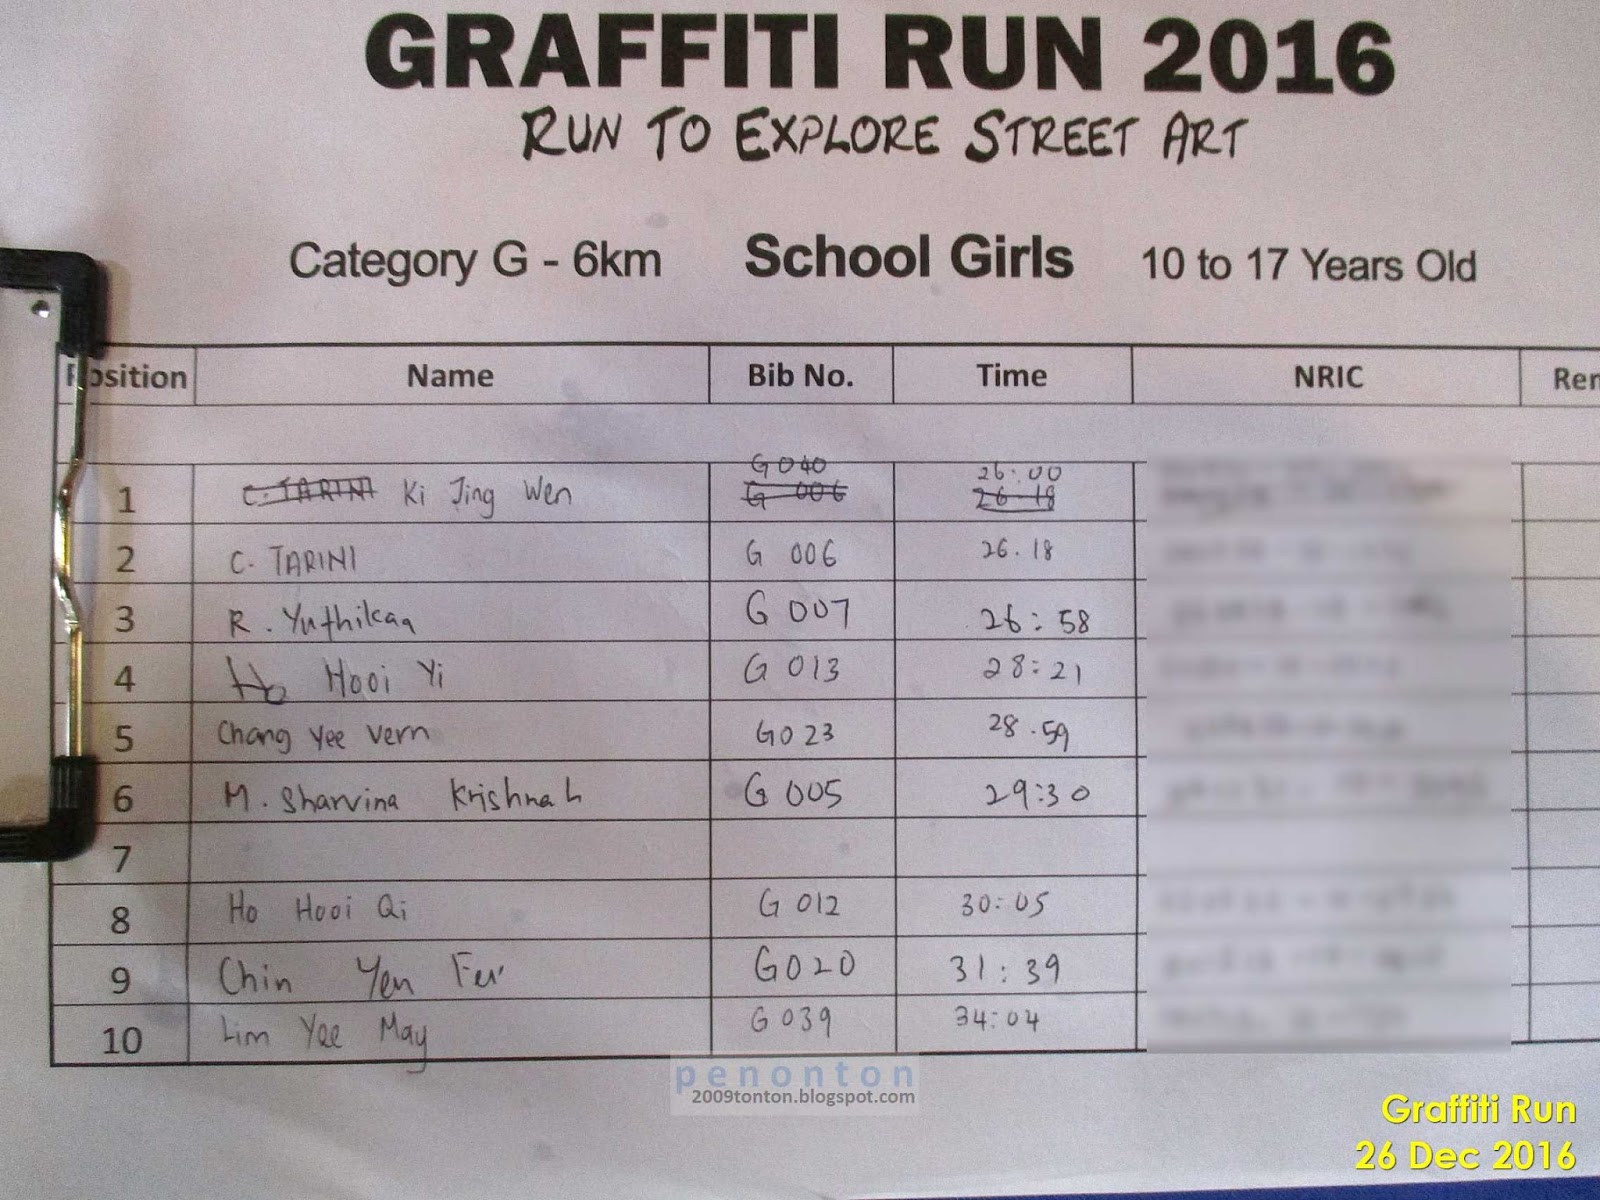 GRAFFITI RUN 2016
RUN TO EXPLORE STREET ART
Category G - 6km School Girls 10 to 17 Years Old
Position Name Bib No. Time NRIC
G040 26:00
1 C. TARINI Ki Jing Wen G 006 26.18
2 C. TARINI G 006 26.18
3 R. Yuthikaa G 007 26:58
4 Ho Hooi Yi G 013 28:21
5 Chang Yee Vern G023 28.59
6 M. Sharvina Krishnah G 005 29:30
7
8 Ho Hooi Qi G 012 30:05
9 Chin Yen Fei G020 31:39
10 Lim Yee May G 039 34:04
penonton
2009tonton.blogspot.com
Graffiti Run
26 Dec 2016